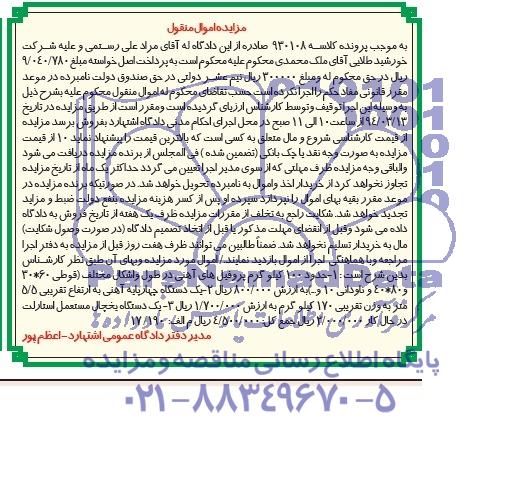 مزایده اموال منقول
به موجب پرونده کلاسه ۹۳۰۱۰۸ صادره از این دادگاه له آقای مراد علی رستمی و علیه شرکت
خورشید طلایی آقای ملک محمدی محکوم علیه محکوم است به پرداخت اصل خواسته مبلغ ۹/۰۴۰/۷۸۰
ریال در حق محکوم له ومبلغ ۳۰۰۰۰۰ ریال نیم عشر دولتی در حق صندوق دولت نامبرده در موعد
مقرر قانونی مفاد حکم را اجرا نکرده است حسب تقاضای محکوم له اموال منقول محکوم علیه بشرح ذیل
به وسیله این اجرا توقیف وتوسط کارشناس ارزیابی گردیده است ومقرر است از طریق مزایده در تاریخ
۹۴/۰۳/۱۳ از ساعت ۱۰ الی ۱۱ صبح در محل اجرای احکام مدنی دادگاه اشتهارد بفروش برسد مزایده
از قیمت کارشناسی شروع و مال متعلق به کسی است که بالاترین قیمت را پیشنهاد نماید ۱۰ از قیمت
مزایده به صورت وجه نقد یا چک بانکی (تضمین شده) فی المجلس از برنده مزایده دریافت می شود
والباقی وجه مزایده ظرف مهلتی که از سوی مدیر اجرا تعیین می گردد حداکثر یک ماه از تاریخ مزایده
تجاوز نخواهد کرد از خریدار اخذ واموال به نامبرده تحویل خواهد شد. در صورتیکه برنده مزایده در
موعد مقرر بقیه بهای اموال را نپردازد سپرده او پس از کسر هزینه مزایده بنفع دولت ضبط و مزاید
تجدید خواهد شد. شکایت راجع به تخلف از مقررات مزایده ظرف یک هفته از تاریخ فروش به دادگاه
داده می شود وقبل از انقضای مهلت مذکور یا قبل از اتخاذ تصمیم دادگاه (در صورت وصول شکایت)
مال به خریدار تسلیم نخواهد شد. ضمناً طالبین می توانند ظرف هفت روز قبل از مزایده به دفتر اجرا
مراجعه وبا هماهنگی اجرا از اموال بازدید نمایند/ اموال مورد مزایده وبهای آن طبق نظر کارشناس
بدین شرح است: ۱-حدود ۱۰۰ کیلو گرم پروفیل های آهنی در طول واشکال مختلف (قوطی ۶۰*۳۰
و۸۰*۴۰ و ناودانی ۱۰ و... به ارزش ۸۰۰/۰۰۰ ریال ۲-یک دستگاه چهارپایه آهنی به ارتفاع تقریبی ۵/۵
متر به وزن تقریبی ۱۷۰ کیلو گرم به ارزش ۱/۷۰۰/۰۰۰ ریال ۳-یک دستگاه یخچال مستعمل استارلت
در حال کار ۲/۰۰۰/۰۰۰ ریال جمع کل: ۴/۵۰۰/۰۰۰ ریال م الف: ۱۷/۱۹۰
مدیر دفتر دادگاه عمومی اشتهارد - اعظم پور
پایگاه اطلاع رسانی مناقصه و مزایده
۰۲۱-۸۸۳۴۹۶۷۰-۵